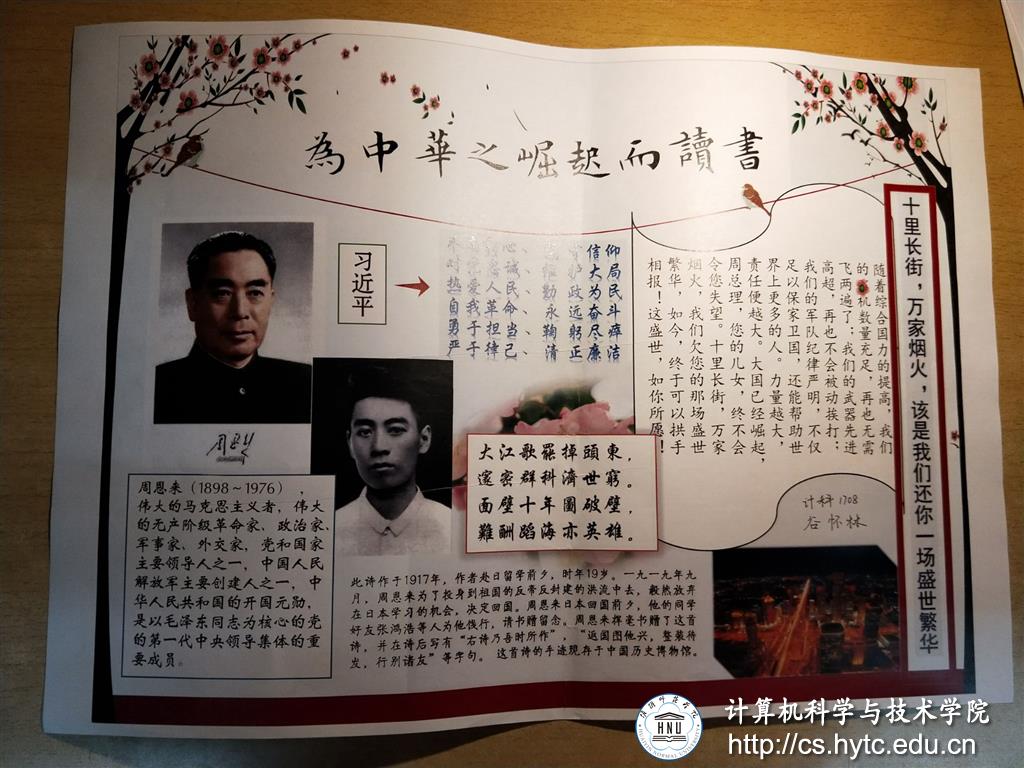 為中華之崛起而讀書
习近平
不忘初心、坚守信仰
对党忠诚、维护大局
热爱人民、勤政为民
自我革命、永远奋斗
勇于担当、鞠躬尽瘁
严于律己、清正廉洁
随着综合国力的提高，我们
的飞机数量充足，再也无需
飞两遍了；我们的武器先进
高超，再也不会被动挨打；
我们的军队纪律严明，不仅
足以保家卫国，还能帮助世
界上更多的人。力量越大，
责任便越大。大国已经崛起，
周总理，您的儿女，终不会
令您失望。十里长街，万家
烟火，我们欠您的那场盛世
繁华，如今，终于可以拱手
相报！这盛世，如你所愿！
十里长街，万家烟火，该是我们还你一场盛世繁华
周恩来
周恩来（1898～1976），
伟大的马克思主义者，伟大
的无产阶级革命家、政治家、
军事家、外交家，党和国家
主要领导人之一，中国人民
解放军主要创建人之一，中
华人民共和国的开国元勋，
是以毛泽东同志为核心的党
的第一代中央领导集体的重
要成员。
大江歌罷掉頭東，
邃密群科濟世窮。
面壁十年圖破壁，
難酬蹈海亦英雄。
此诗作于1917年，作者赴日留学前夕，时年19岁。一九一九年九
月，周恩来为了投身到祖国的反帝反封建的洪流中去，毅然放弃
在日本学习的机会，决定回国。周恩来日本回国前夕，他的同学
好友张鸿浩等人为他饯行，请书赠留念。周恩来挥毫书赠了这首
诗，并在诗后写有“右诗乃吾时所作”，“返国图他兴，整装待
发，行别诸友”等字句。 这首诗的手迹现存于中国历史博物馆。
计科1708
谷怀林
HNU
计算机科学与技术学院
http://cs.hytc.edu.cn